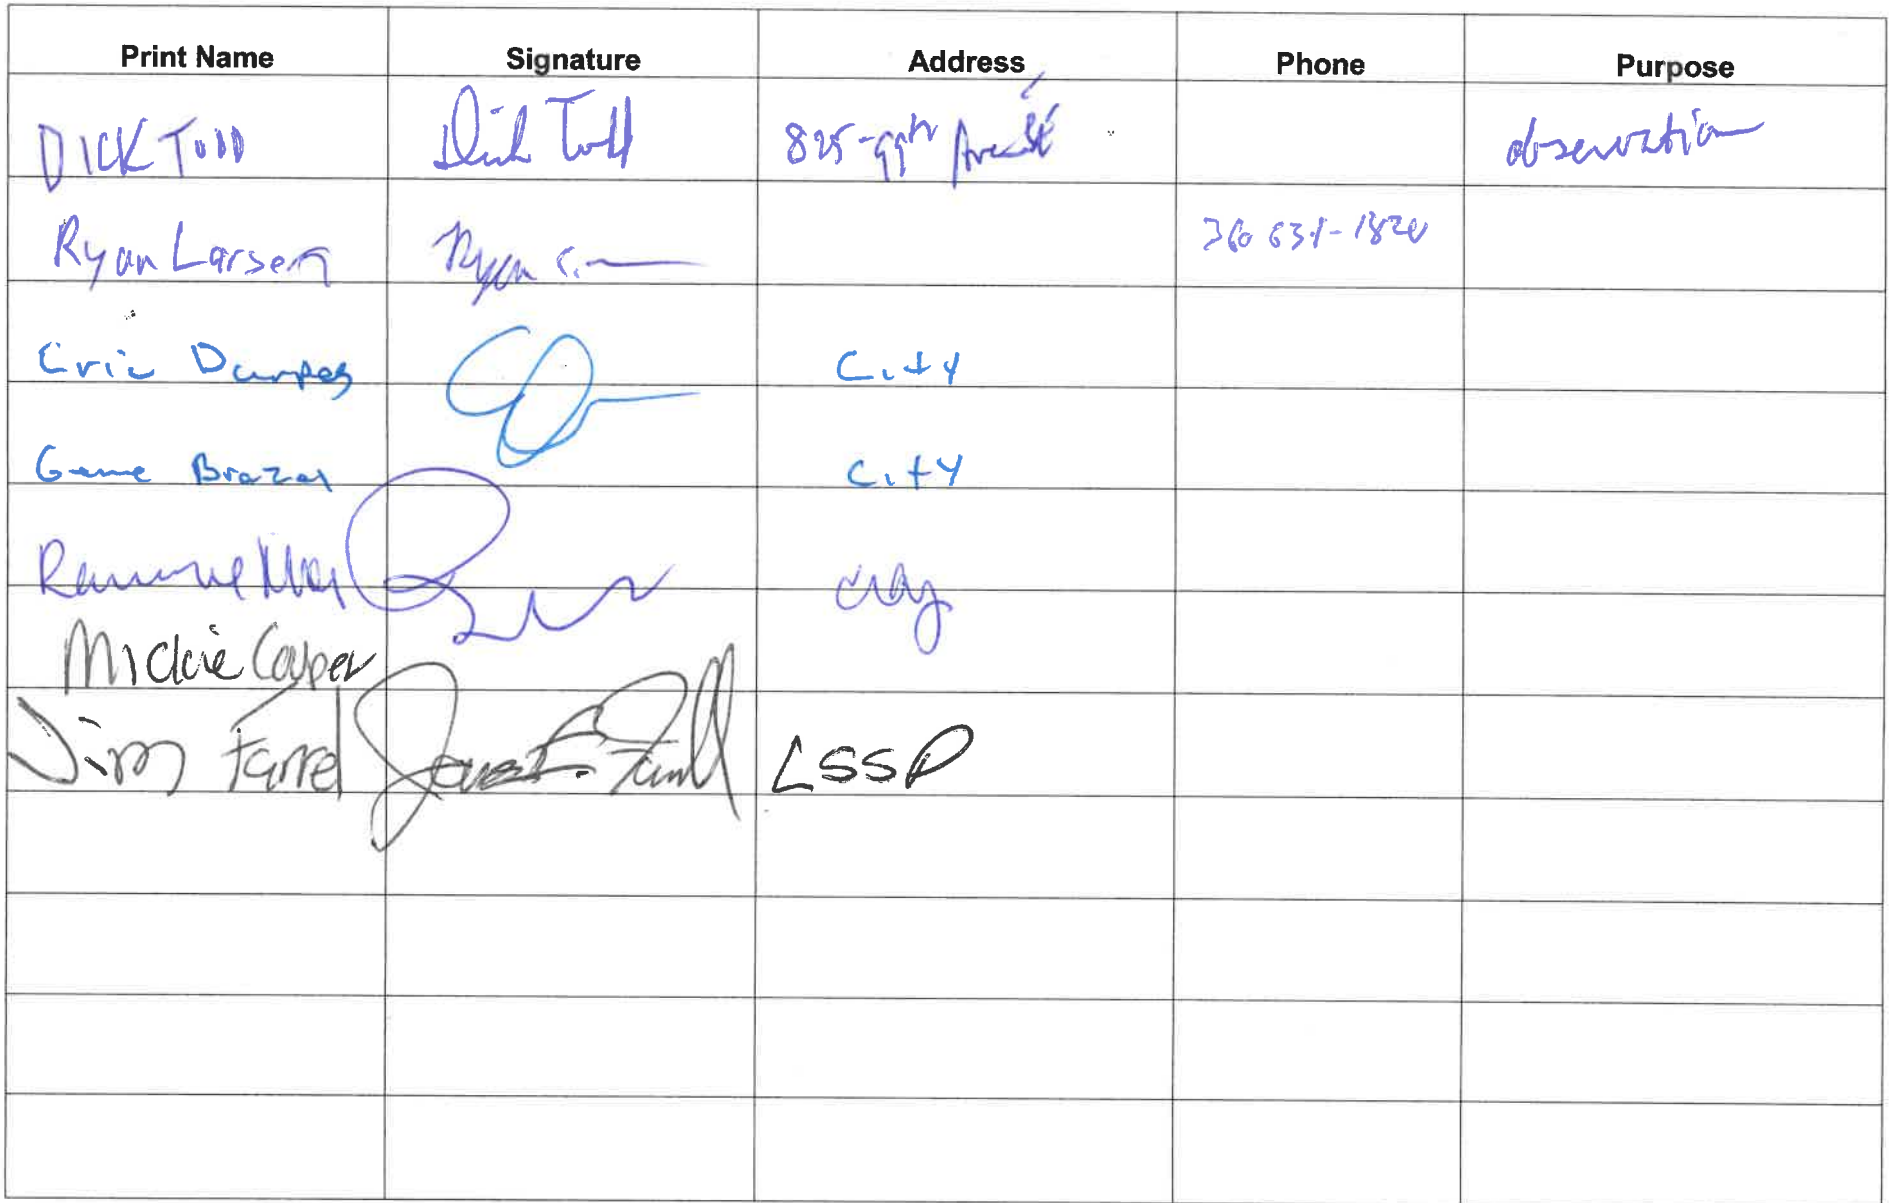 Print Name Signature Address Phone Purpose
DICK TODD Dick Todd 825-99th Ave SE observation
Ryan Larsen Ryan 360 631-1820
Eric Durpos City
Gene Brazel City
City
Mickie Cooper
Jim Farrel James Farrell LSSD